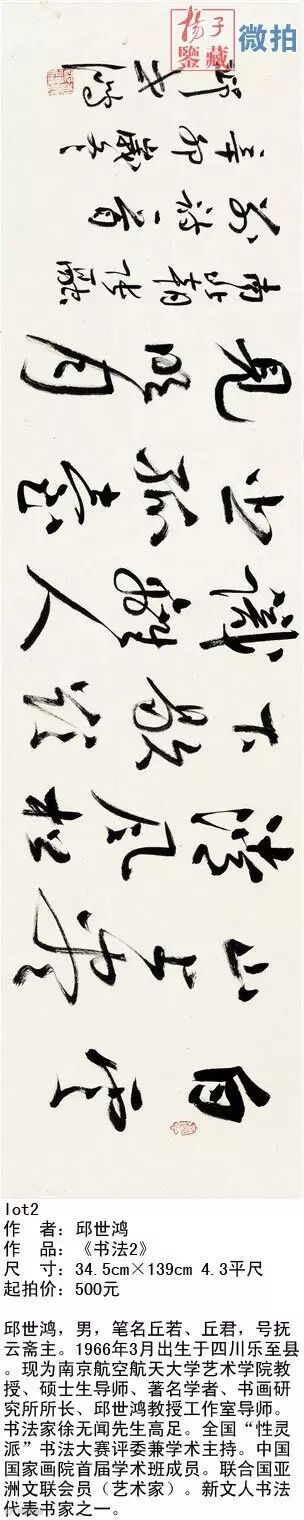 白云
山上尽
清风松
下歇欲
识离人
悲孤台
见明月
南北朝张融
别诗一首
辛卯岁冬
邱世鸿
楊子
鑒藏
微拍
lot2
作 者：邱世鸿
作 品：《书法2》
尺 寸：34.5cm×139cm 4.3平尺
起拍价：500元
邱世鸿，男，笔名丘若、丘君，号抚
云斋主。1966年3月出生于四川乐至县
。现为南京航空航天大学艺术学院教
授、硕士生导师、著名学者、书画研
究所所长、邱世鸿教授工作室导师。
书法家徐无闻先生高足。全国“性灵
派”书法大赛评委兼学术主持。中国
国家画院首届学术班成员。联合国亚
洲文联会员（艺术家）。新文人书法
代表书家之一。